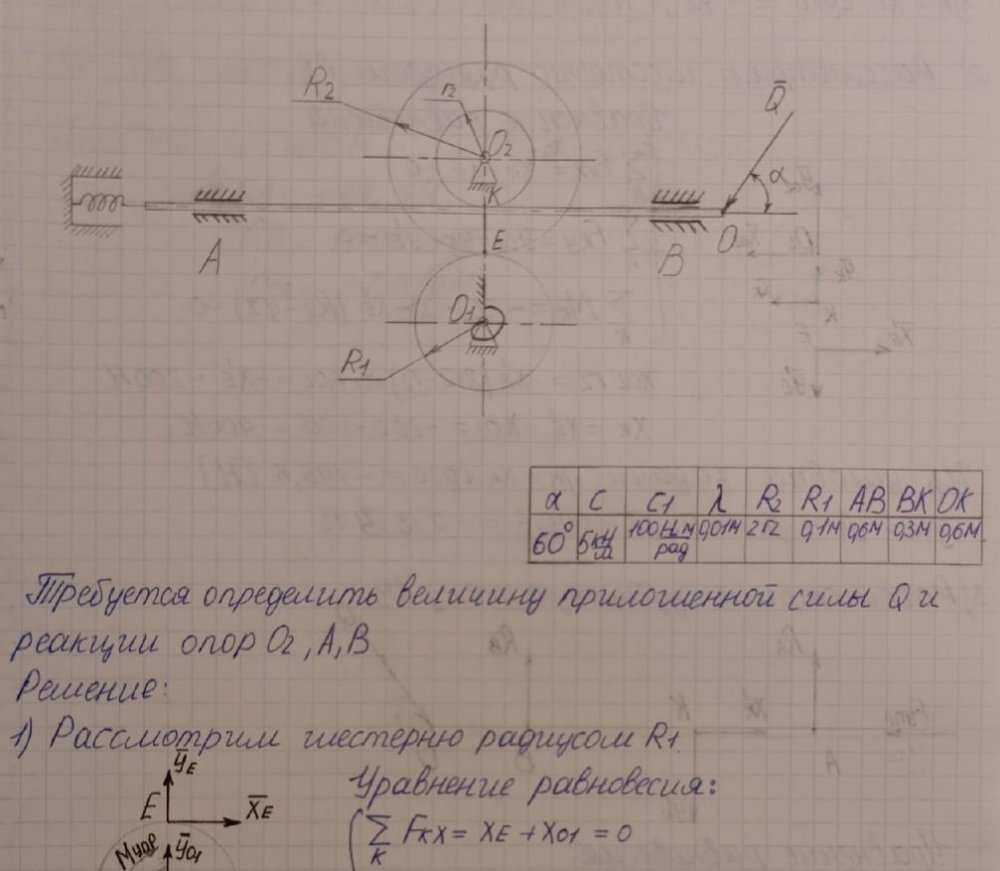 R2
r2
O2
Q̄
α
K
A
B
O
E
O1
R1
α C C1 λ R2 R1 AB BK OK
60° 5кН/м 100Н·м/рад 0,01м 2r2 0,1м 0,6м 0,3м 0,6м
Требуется определить величину приложенной силы Q и
реакции опор O2, A, B
Решение:
1) Рассмотрим шестерню радиусом R1.
ȳE
E x̄E
Уравнение равновесия:
Mупр ȳO1
∑ Fкx = XE + XO1 = 0
K